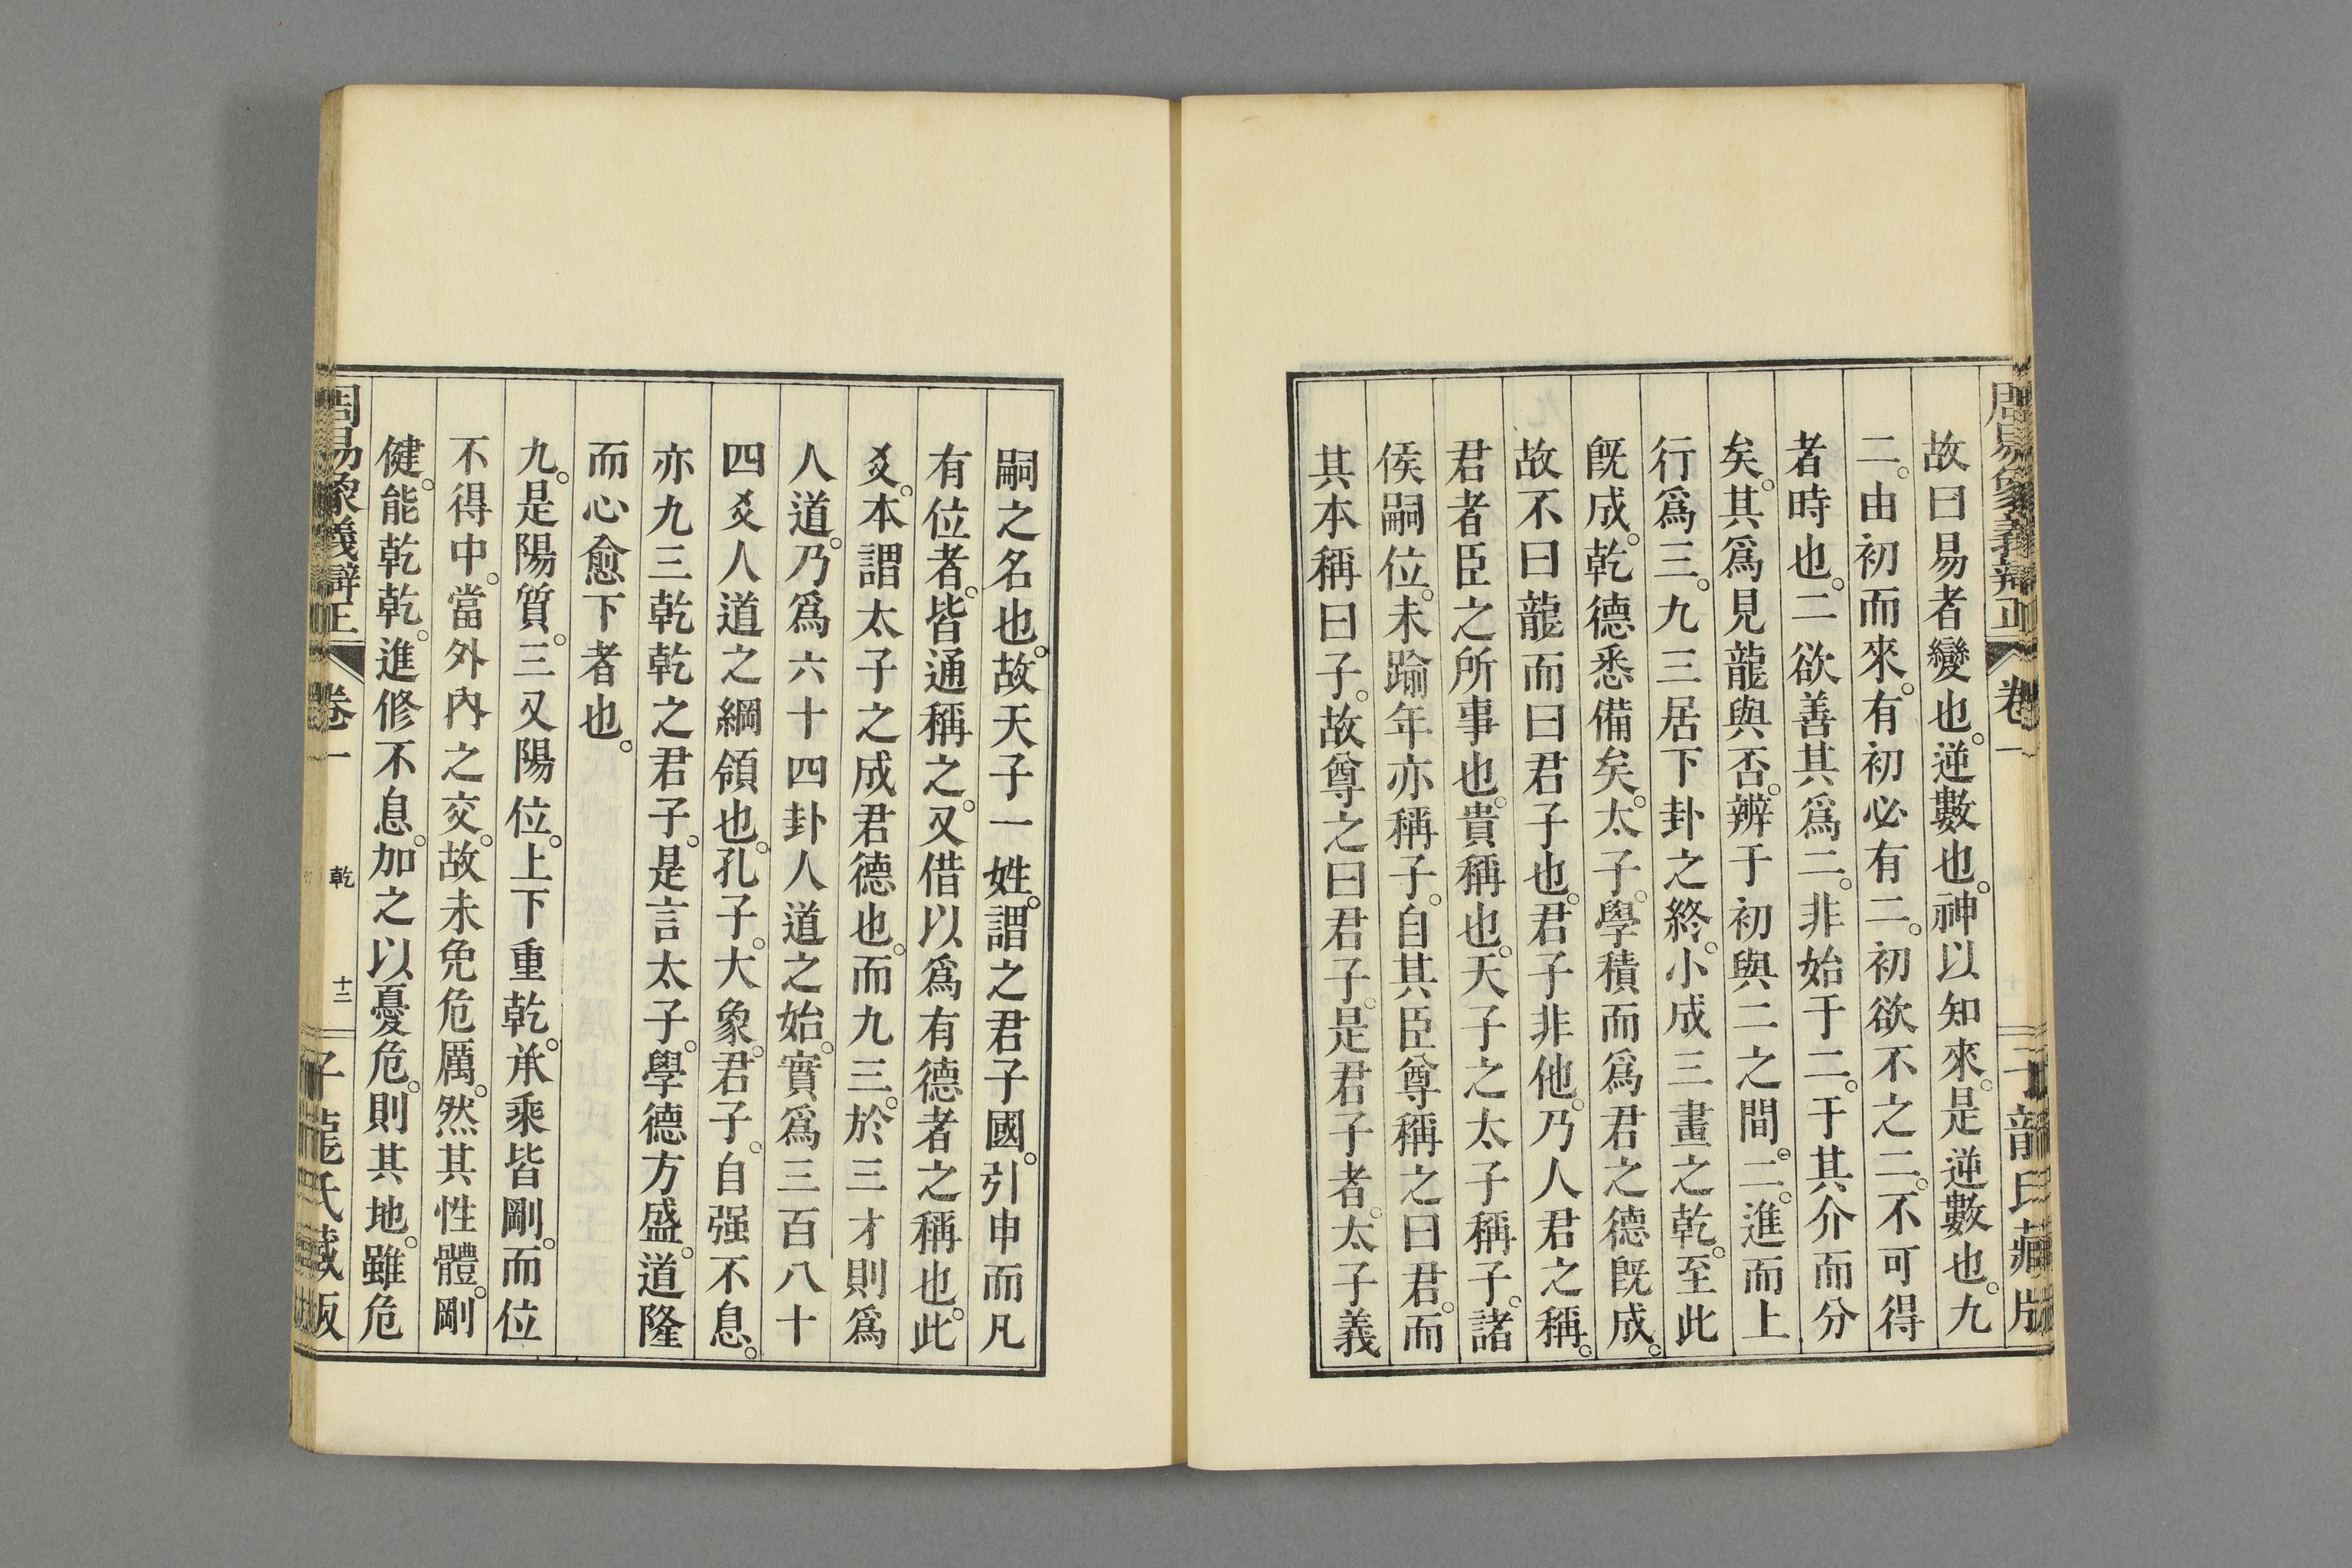 周易象義辯正 卷一 子龍氏藏版
故曰易者變也。逆數也。神以知來。是逆數也。九
二。由初而來。有初必有二。初欲不之二。不可得
者時也。二欲善其爲二。非始于二。于其介而分
矣。其爲見龍與否。辨于初與二之間。二。進而上
行爲三。九三居下卦之終。小成三畫之乾。至此
既成。乾德悉備矣。太子。學積而爲君之德既成。
故不曰龍而曰君子也。君子非他。乃人君之稱。
君者臣之所事也。貴稱也。天子之太子稱子。諸
侯嗣位。未踰年亦稱子。自其臣尊稱之曰君。而
其本稱曰子。故尊之曰君子。是君子者。太子義
嗣之名也。故天子一姓。謂之君子國。引申而凡
有位者。皆通稱之。又借以爲有德者之稱也。此
爻。本謂太子之成君德也。而九三。於三才則爲
人道。乃爲六十四卦人道之始。實爲三百八十
四爻人道之綱領也。孔子。大象。君子。自强不息。
亦九三乾乾之君子。是言太子。學德方盛。道隆
而心愈下者也。
九。是陽質。三又陽位。上下重乾。承乘皆剛。而位
不得中。當外內之交。故未免危厲。然其性體。剛
健。能乾乾。進修不息。加之以憂危。則其地。雖危
周易象義辯正 卷一 乾 十二 子龍氏藏版